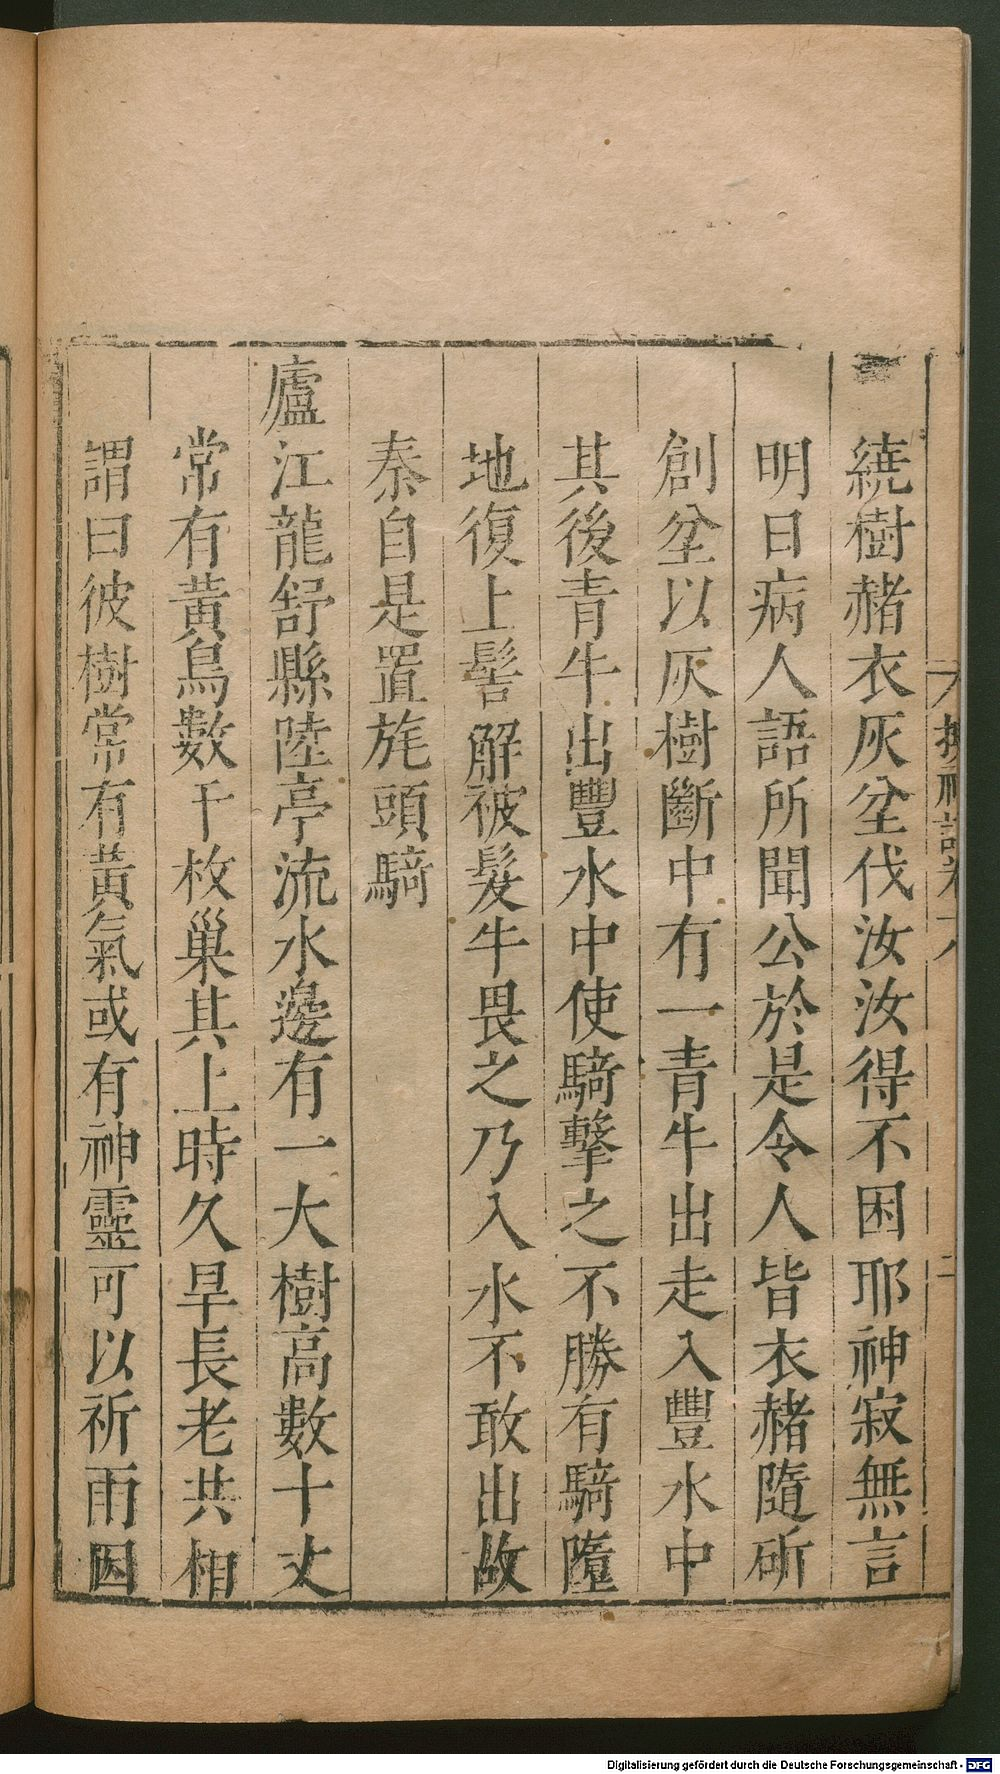 繞樹赭衣灰坌伐汝汝得不困耶神寂無言
明日病人語所聞公於是令人皆衣赭隨斫
創坌以灰樹斷中有一青牛出走入豐水中
其後青牛出豐水中使騎擊之不勝有騎墮
地復上髻解被髮牛畏之乃入水不敢出故
秦自是置旄頭騎
廬江龍舒縣陸亭流水邊有一大樹高數十丈
常有黃鳥數千枚巢其上時久旱長老共相
謂曰彼樹常有黃氣或有神靈可以祈雨因
Digitalisierung gefördert durch die Deutsche Forschungsgemeinschaft - DFG